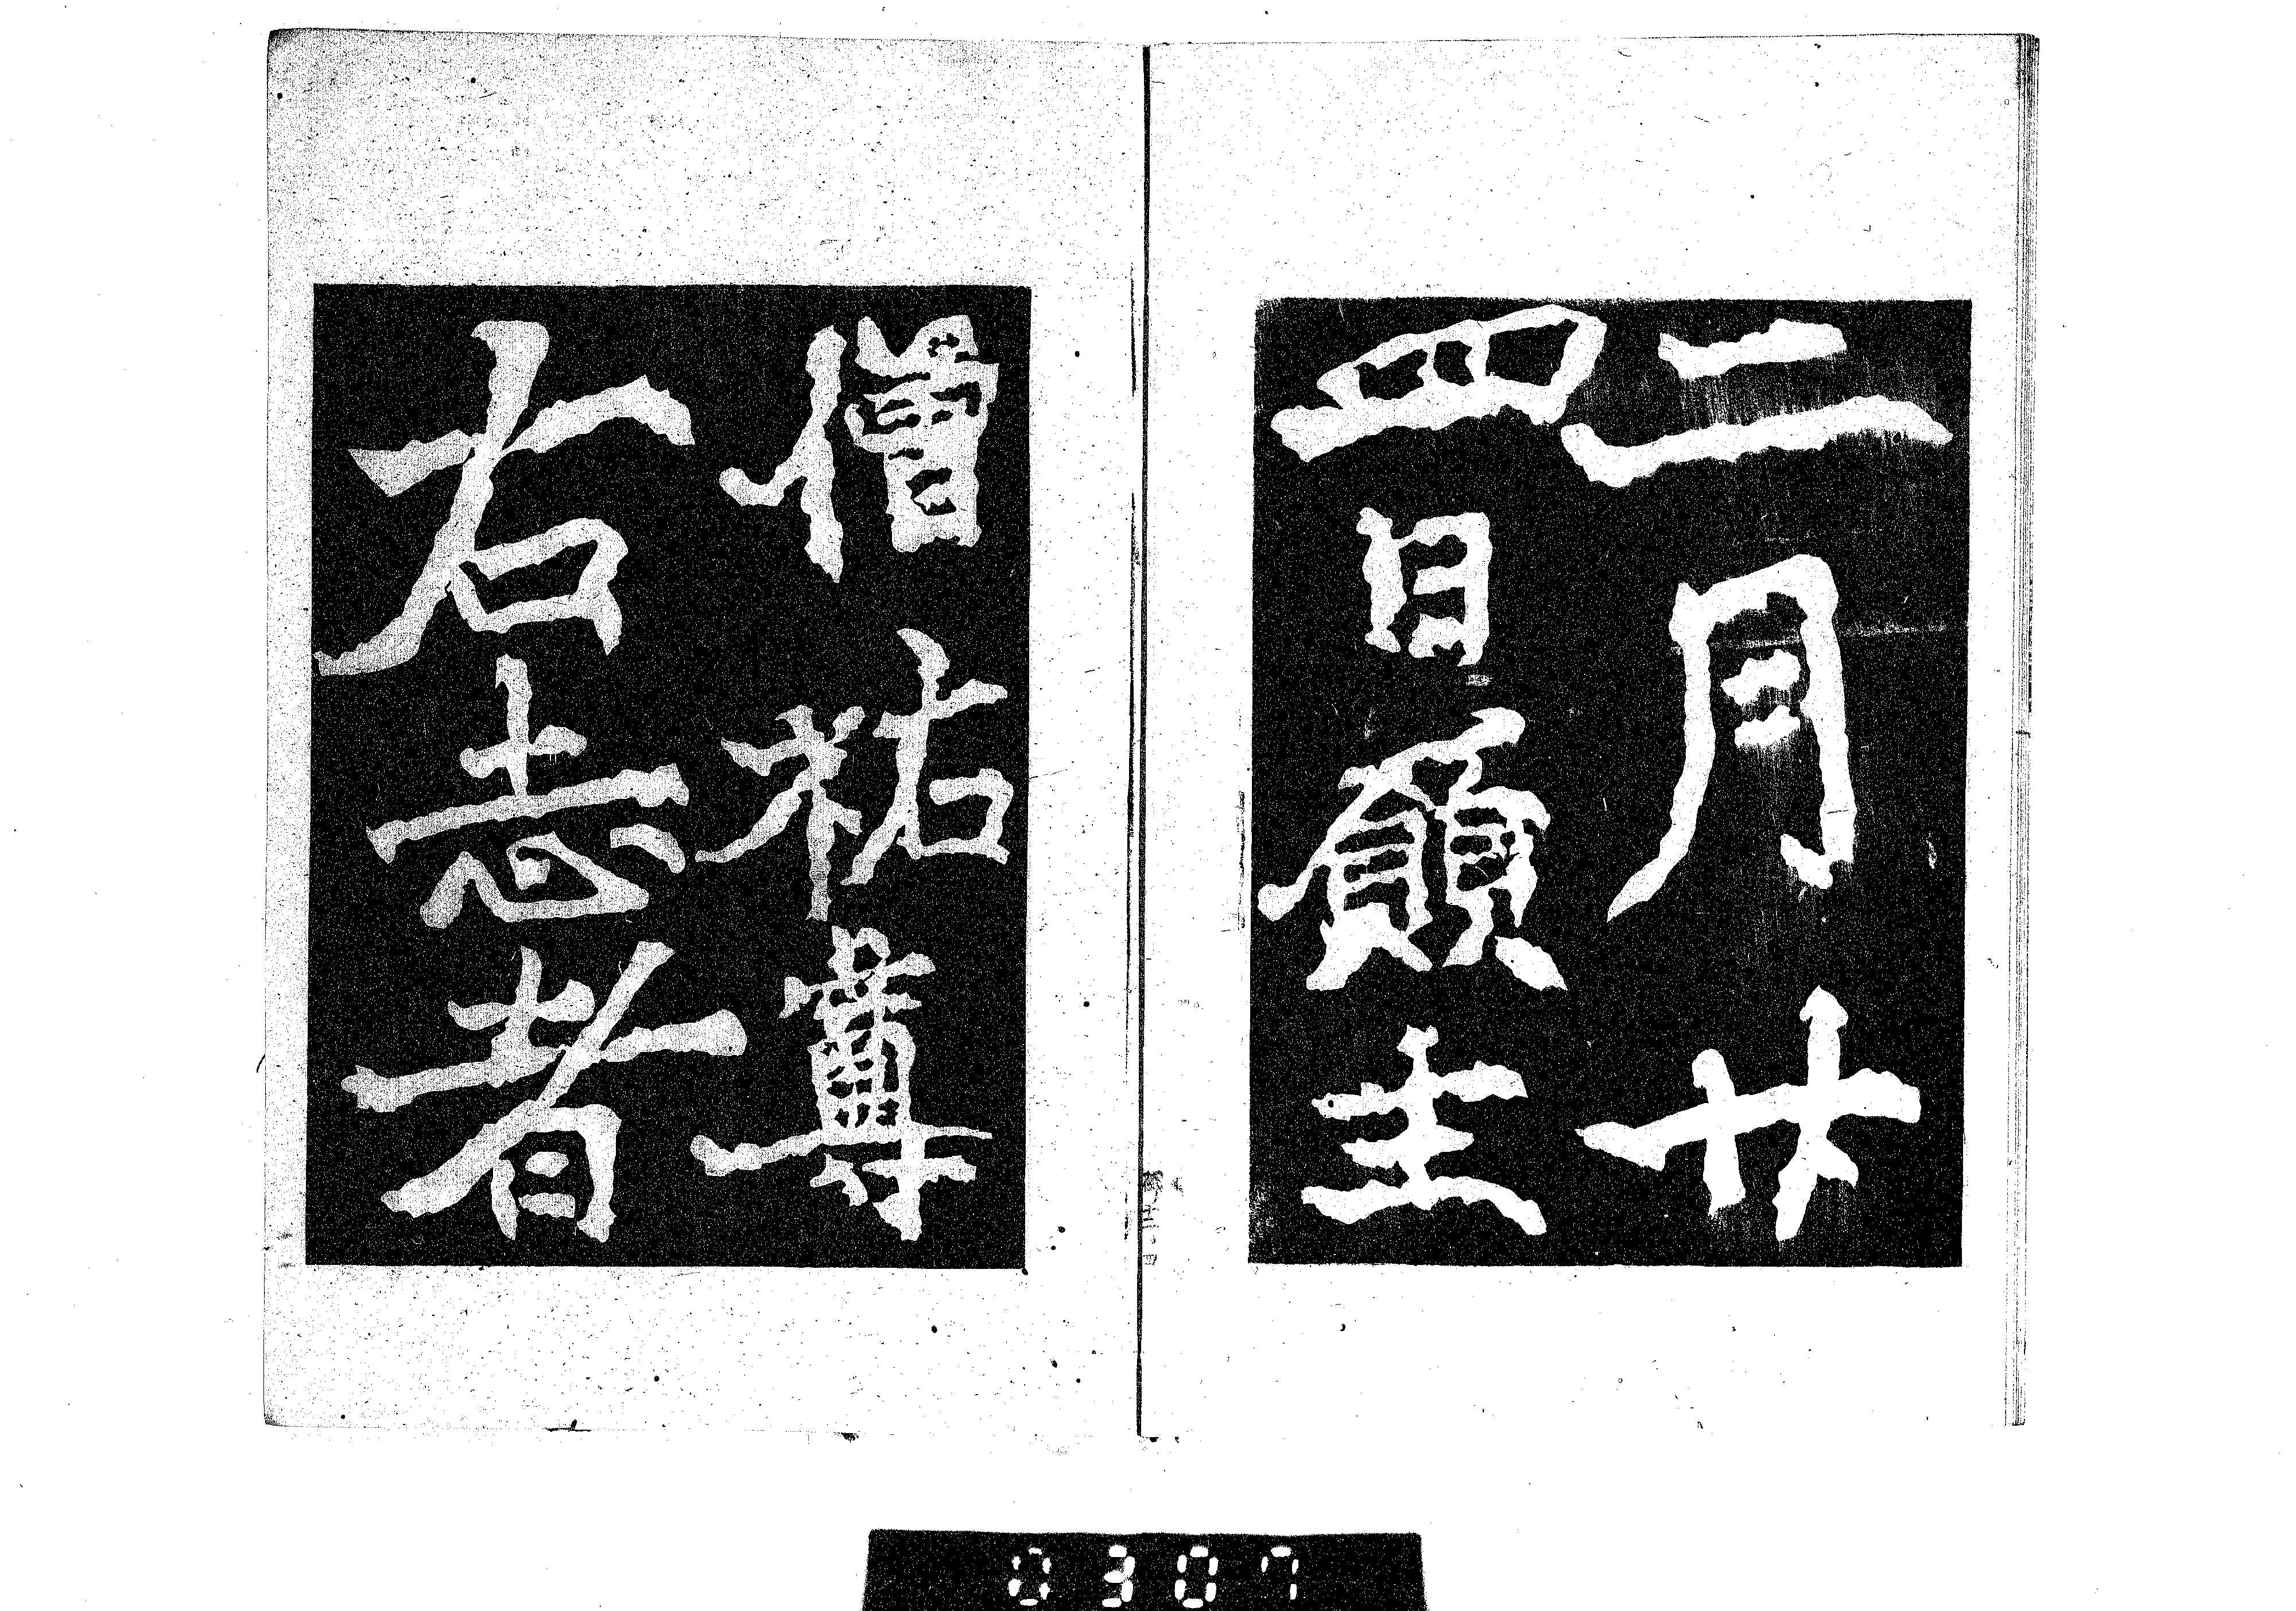 二月廿
四日願主
僧祐尊
右志者
0307